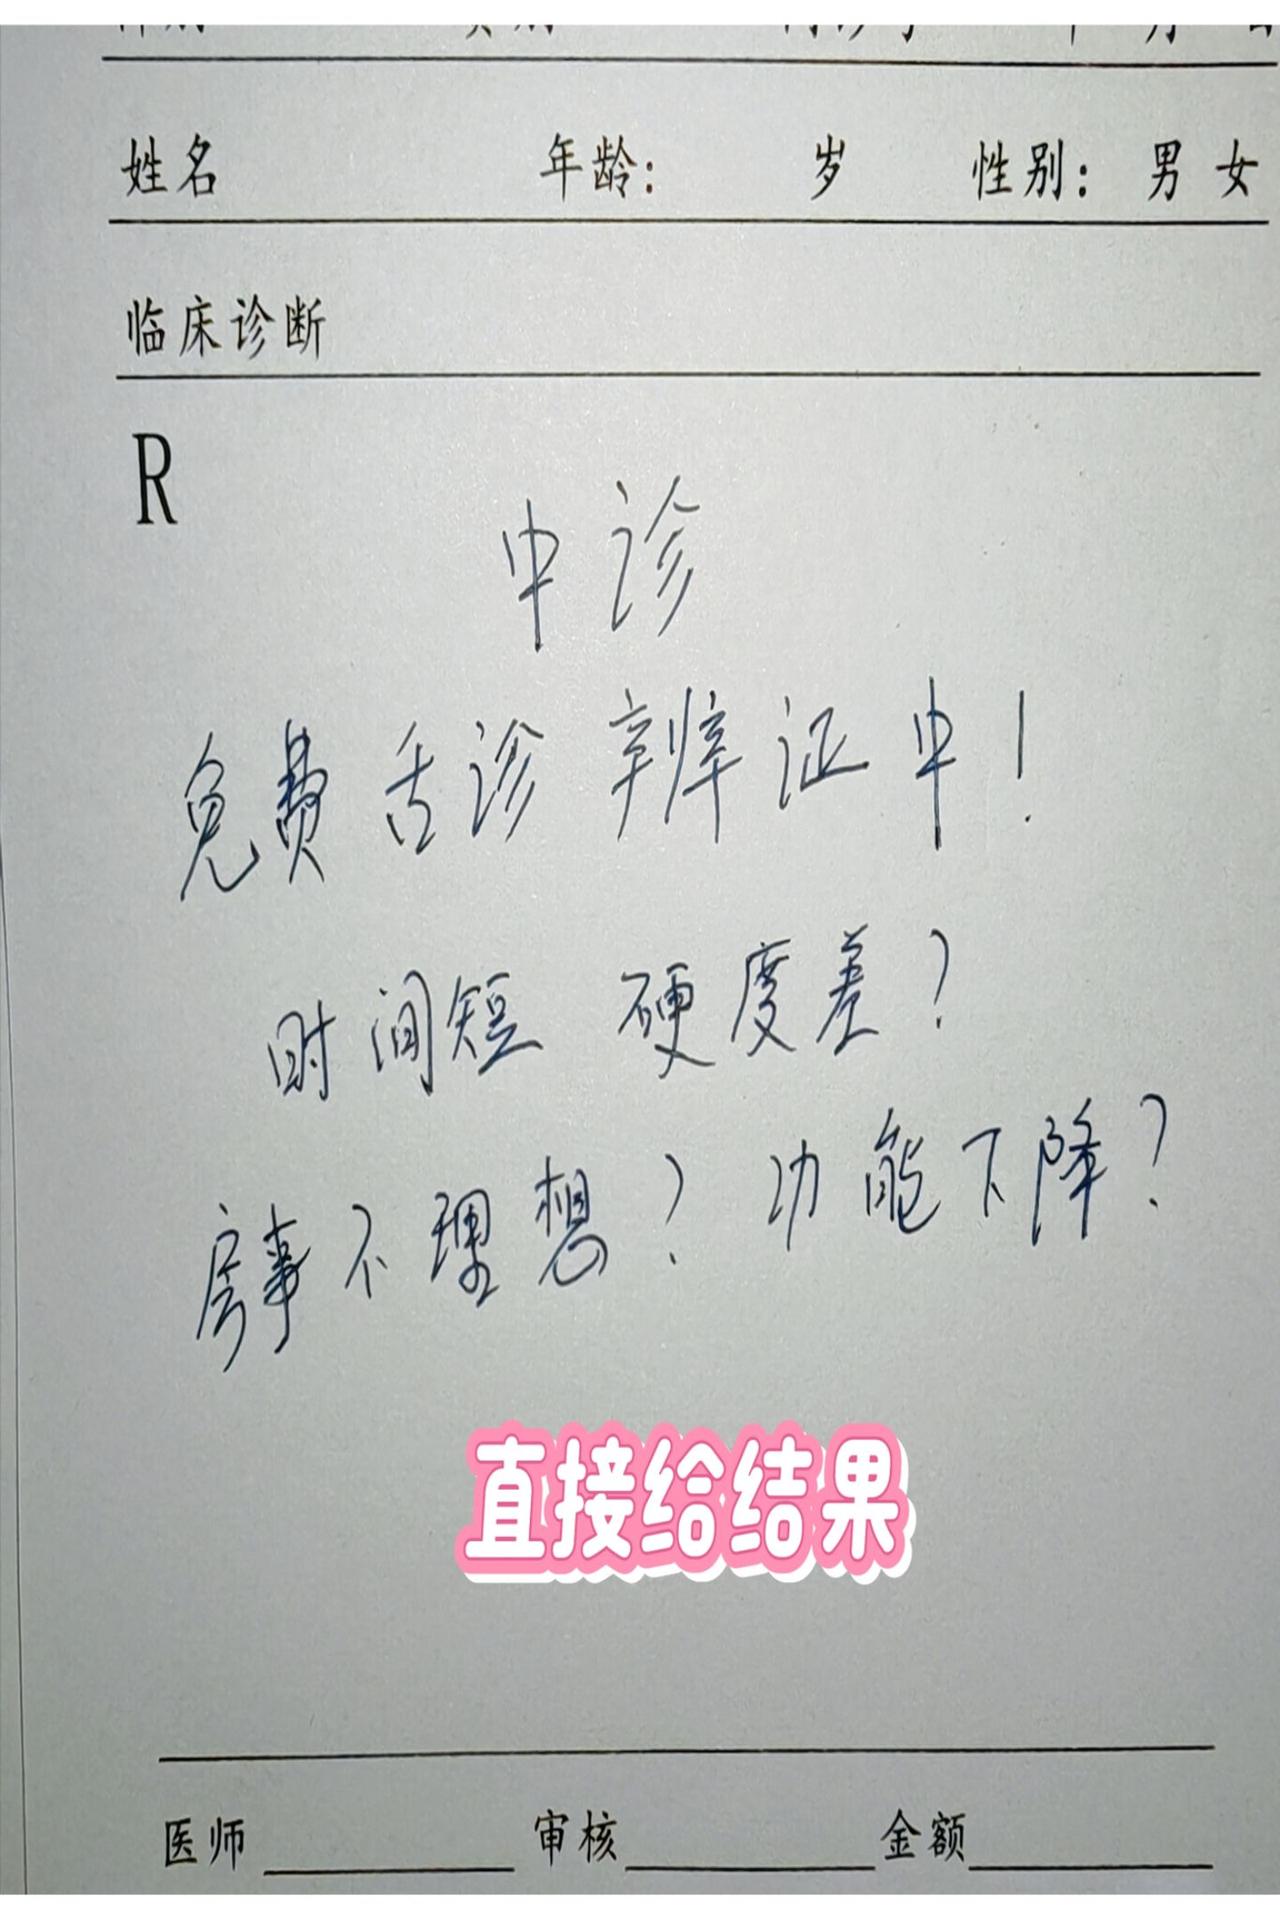 姓名 年龄: 岁 性别: 男 女
临床诊断
R
中诊
免费舌诊辨证中!
时间短 硬度差?
房事不理想? 功能下降?
直接给结果
医师 审核 金额